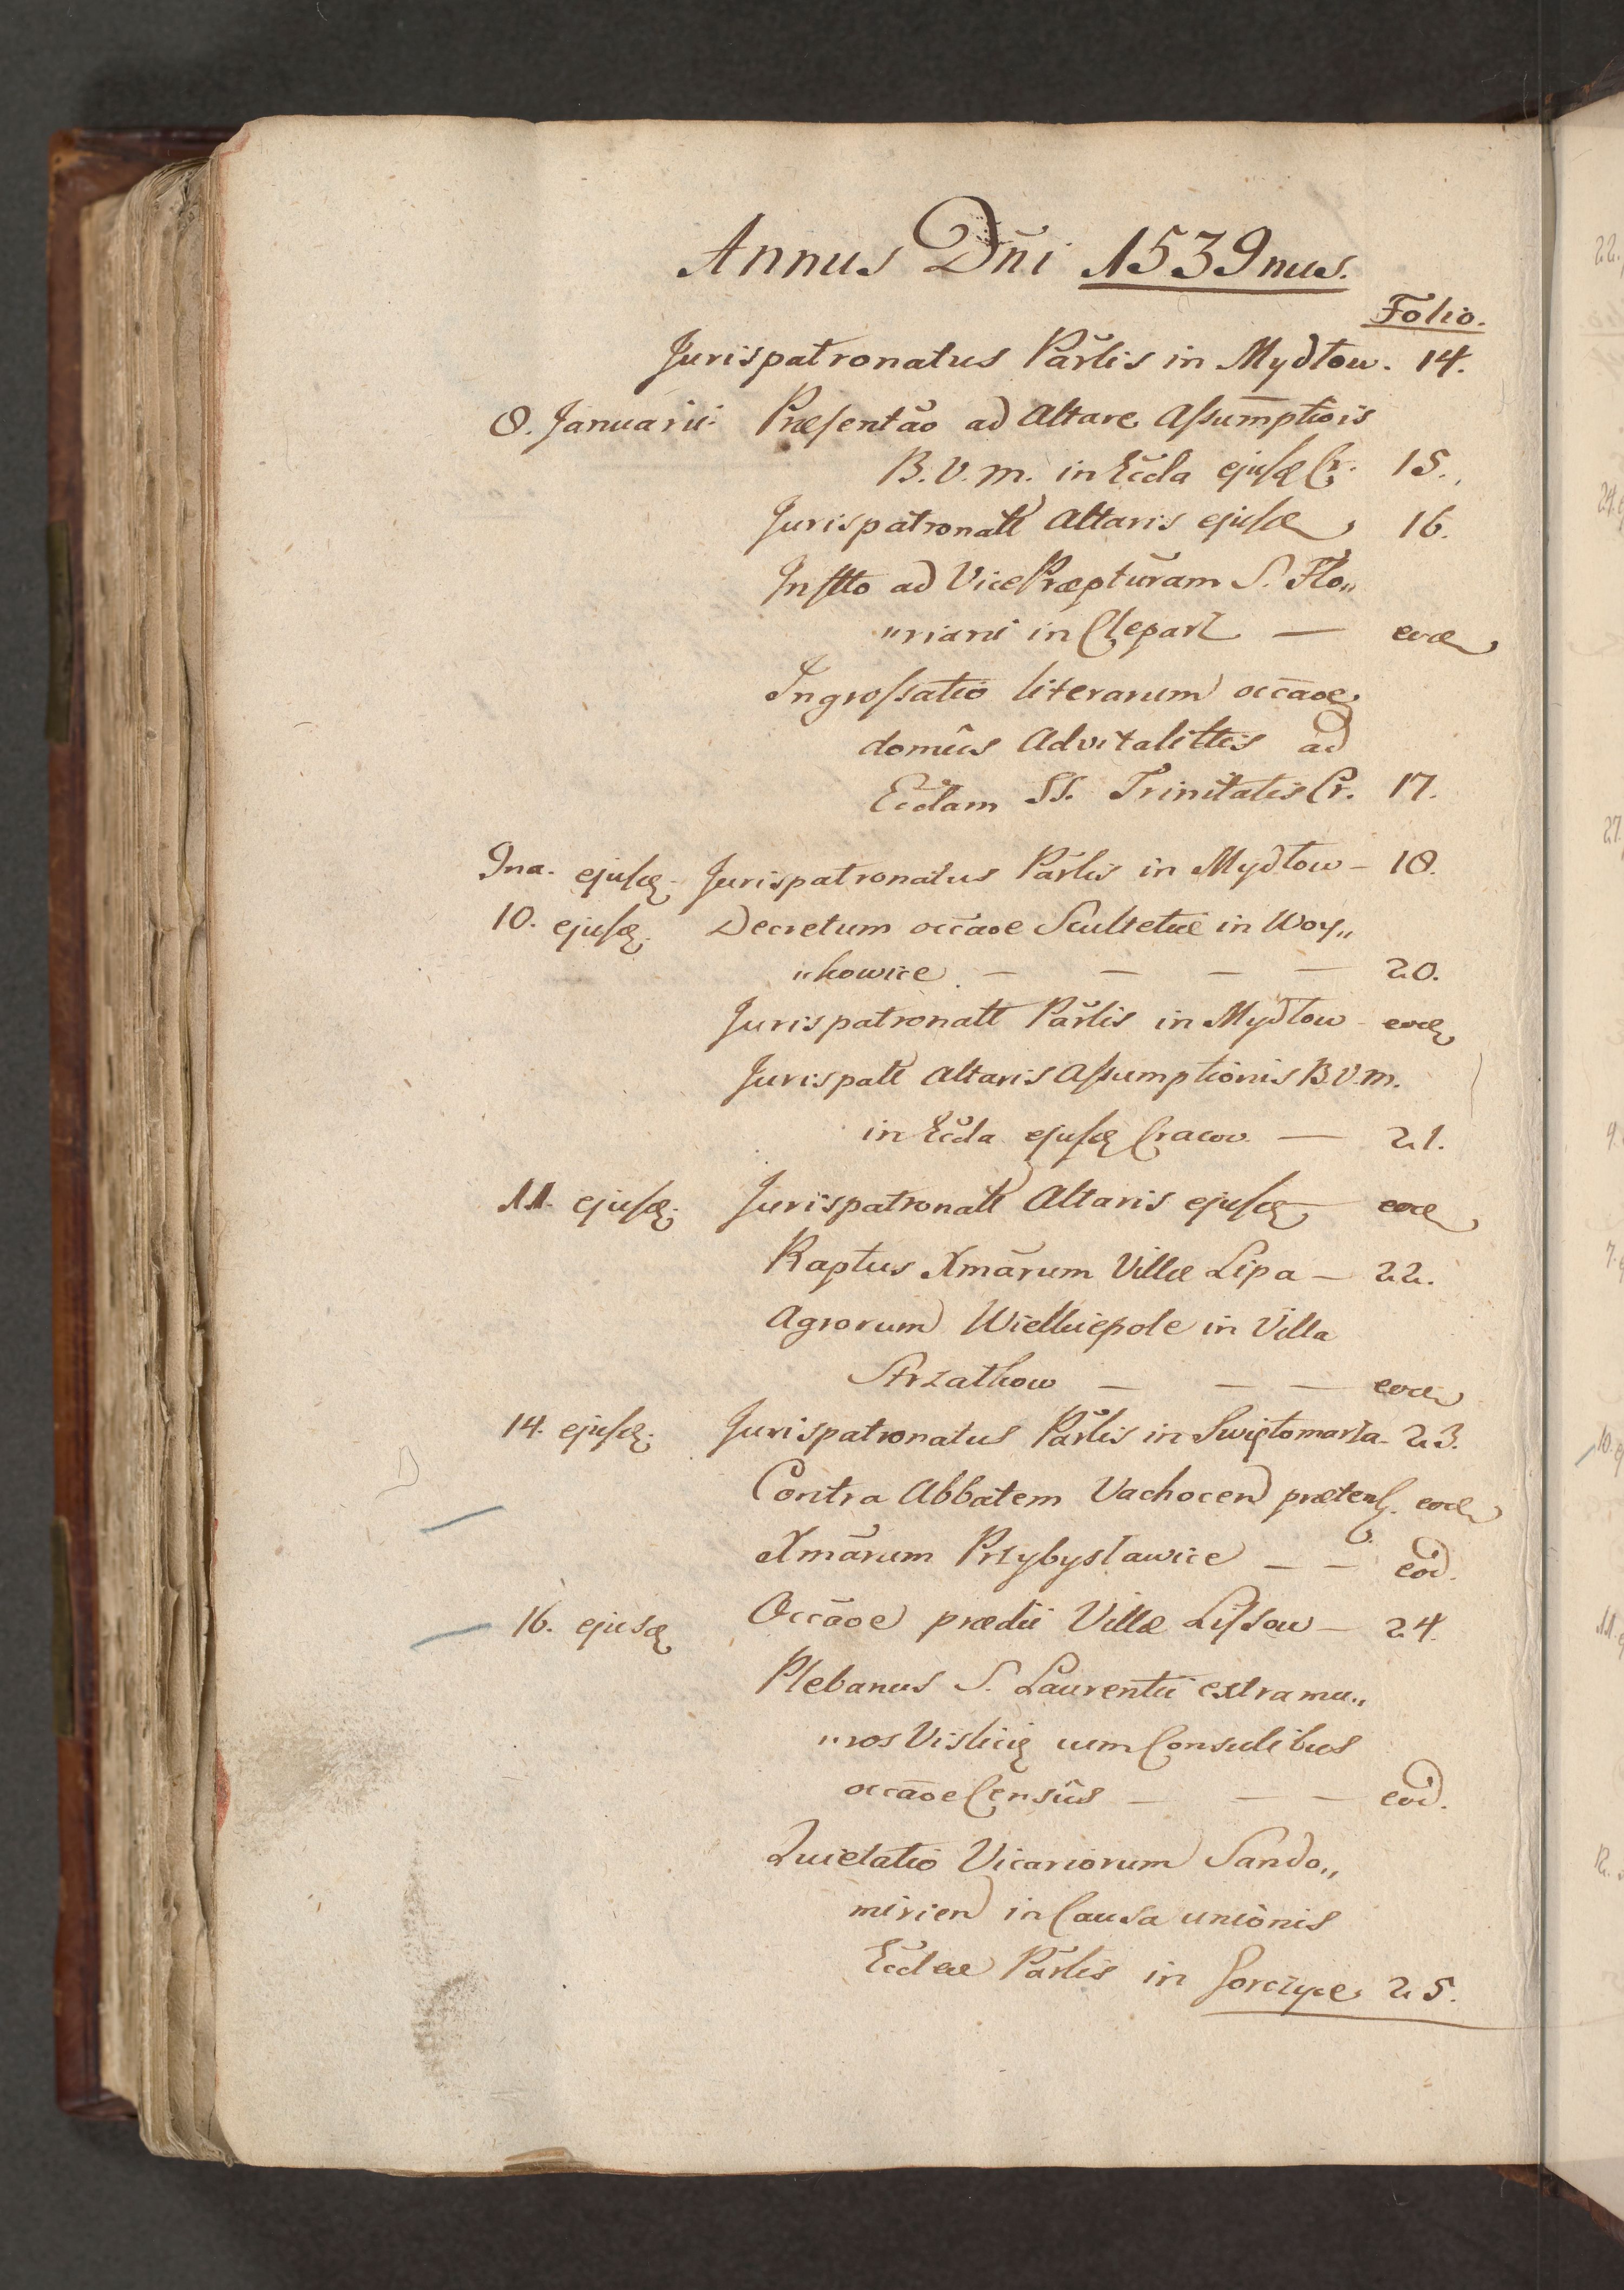 Annus Dñi 1539nus.
Folio.
Jurispatronatus Parłis in Mydłow. 14.
8. Januarii. Præsentão ad Altare Assumptiois
B. V. M. in Eccla ejusd Cr. 15.
Jurispatronatt Altaris ejusd 16.
Instto ad VicePræpturam S. Flo„
„riani in Clepart — eod
Ingrossatio literarum occãoe
domûs Advitalittis ad
Ecclam SS. Trinitatis Cr. 17.
9na. ejusd. Jurispatronatus Parłis in Mydłow – 18.
10. ejusd. Decretum occãoe Scultetiæ in Woy„
„kowice — — — — 20.
Jurispatronatt Parłis in Mydłow – eod
Jurispatt Altaris Assumptionis B. V. M.
in Eccla ejusd Cracov. — 21.
11. ejusd. Jurispatronatt Altaris ejusd – eod
Raptus Xmãrum Villæ Lipa – 22.
Agrorum Wielkiepole in Villa
Strzałkow — — — eod
14. ejusd. Jurispatronatus Parłis in Swiętomarza – 23.
Contra Abbatem Vachocen prætens. eod
Xmãrum Przybysławice — — eod.
16. ejusd Occãoe prædii Villæ Lissow – 24.
Plebanus S. Laurentii extra mu„
„ros Vislicię cum Consulibus
occãoe Censûs — — — eod.
Quietatio Vicariorum Sando„
mirien in Causa unionis
Ecclæ Parłis in Gorczyce 25.